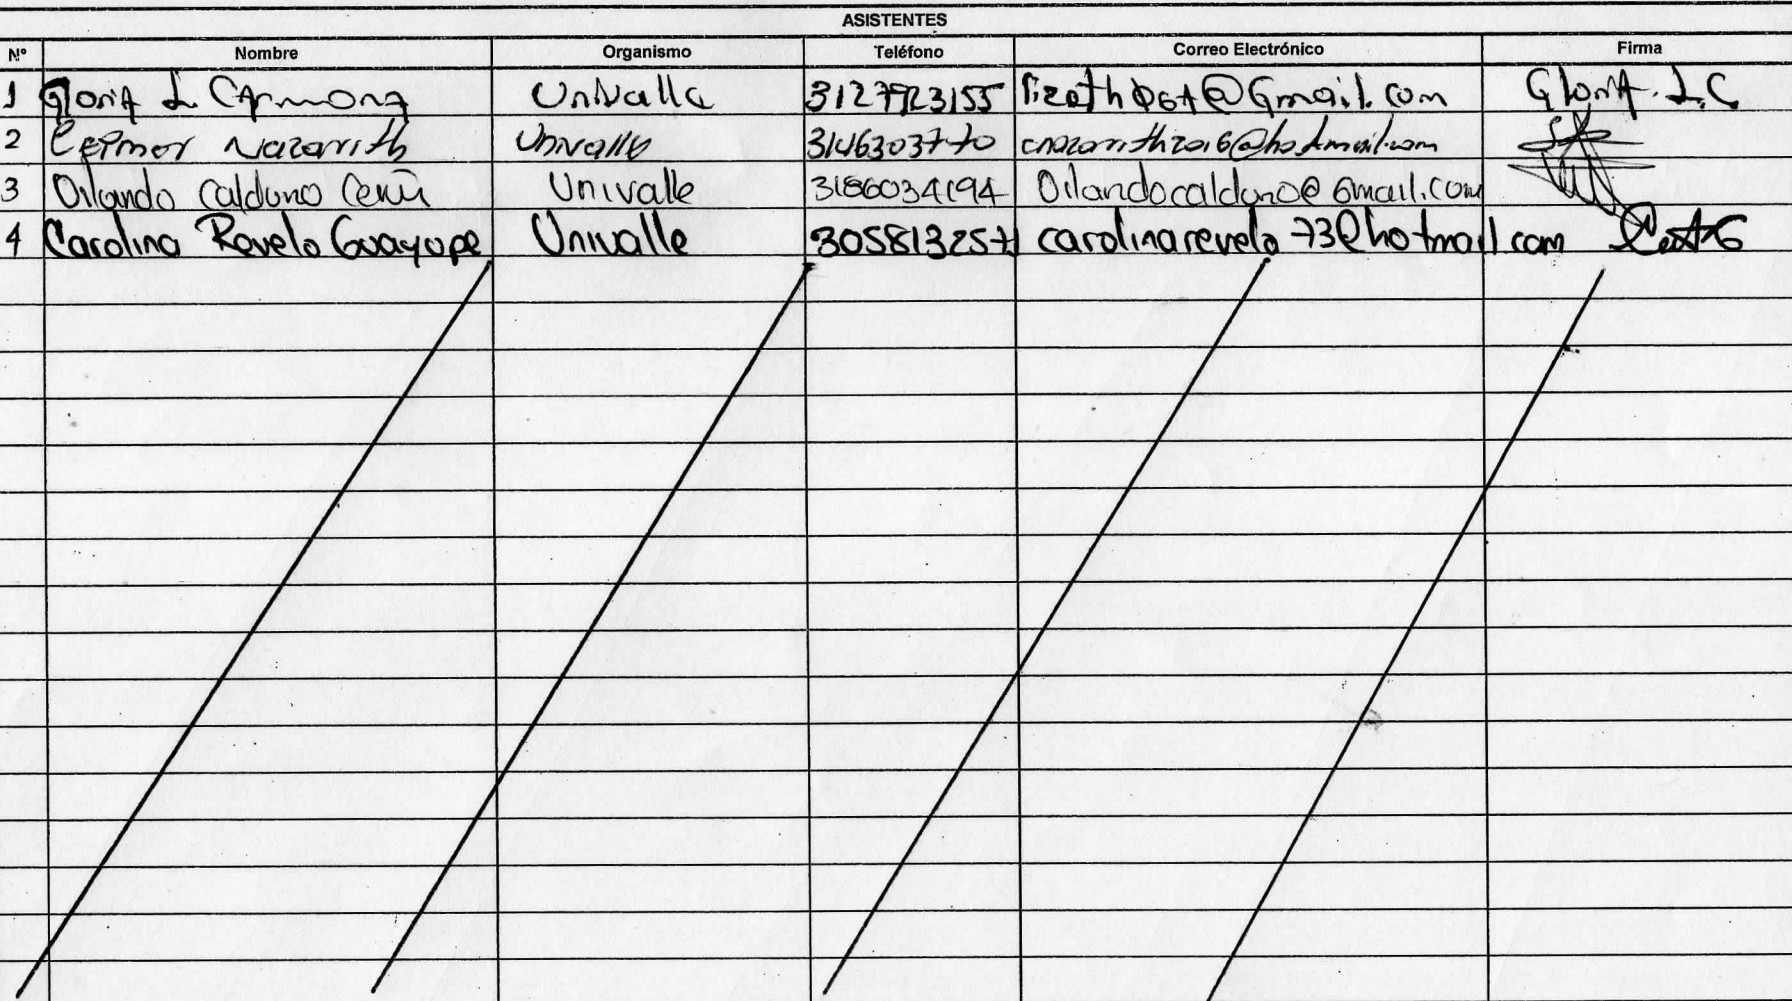 ASISTENTES
Nº Nombre Organismo Teléfono Correo Electrónico Firma
1 Gloria L. Carmona Univalle 3127923155 lizethΦ6t@Gmail.com Gloria. L.C
2 Ceimer Nazarith Univalle 3146303770 cnazarithizo16@hotmail.com
3 Orlando Calduno Cerú Univalle 3186034194 Orlandocalduno@Gmail.com
4 Carolina Revelo Guayupe Univalle 3058132571 carolinarevelo73@hotmail.com